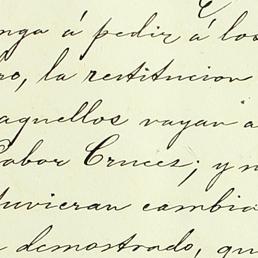 nga á pedir á los
ro, la restitucion
aquellos vayan a
Cabor Cruces; y n
tuvieran cambia
demostrado, qu